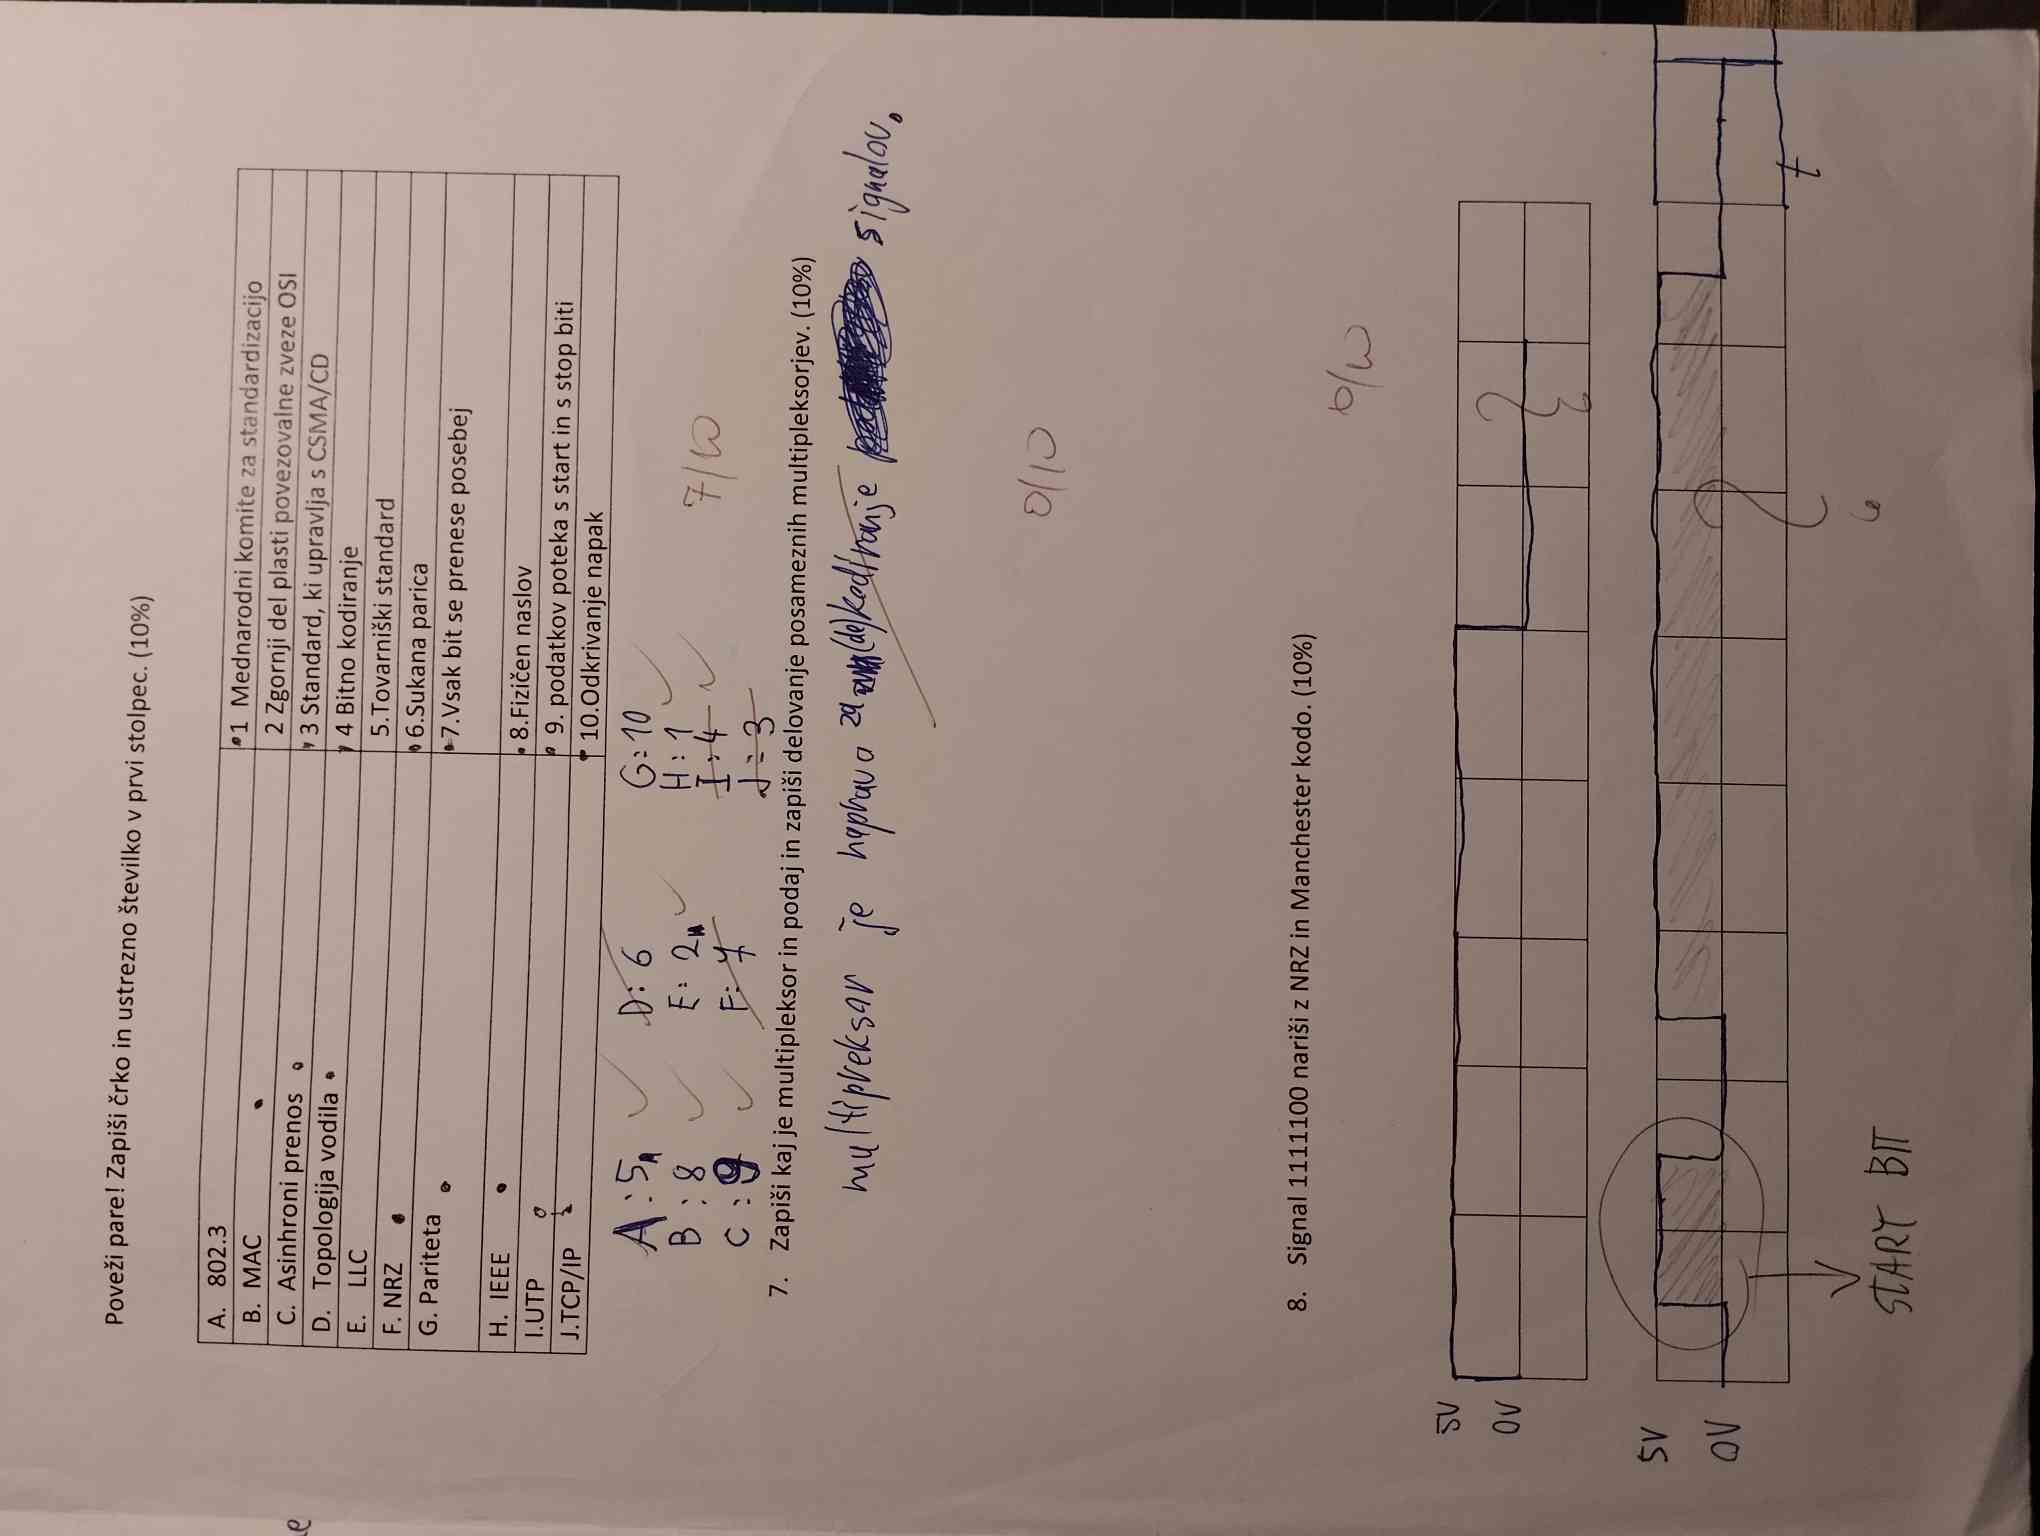 e
Poveži pare! Zapiši črko in ustrezno številko v prvi stolpec. (10%)
A. 802.3
1 Mednarodni komite za standardizacijo
B. MAC
2 Zgornji del plasti povezovalne zveze OSI
C. Asinhroni prenos
3 Standard, ki upravlja s CSMA/CD
D. Topologija vodila
4 Bitno kodiranje
E. LLC
5.Tovarniški standard
F. NRZ
6.Sukana parica
G. Pariteta
7.Vsak bit se prenese posebej
H. IEEE
8.Fizičen naslov
I.UTP
9. podatkov poteka s start in s stop biti
J.TCP/IP
10.Odkrivanje napak
A : 5 D: 6 G: 10
B : 8 E: 2 H : 1
C : 9 F: 7 I : 4
J : 3
7/10
7. Zapiši kaj je multipleksor in podaj in zapiši delovanje posameznih multipleksorjev. (10%)
multipreksor je naprava za (de)kodiranje signalov.
0/10
8. Signal 1111100 nariši z NRZ in Manchester kodo. (10%)
0/10
5V
0V
5V
0V
t
START BIT